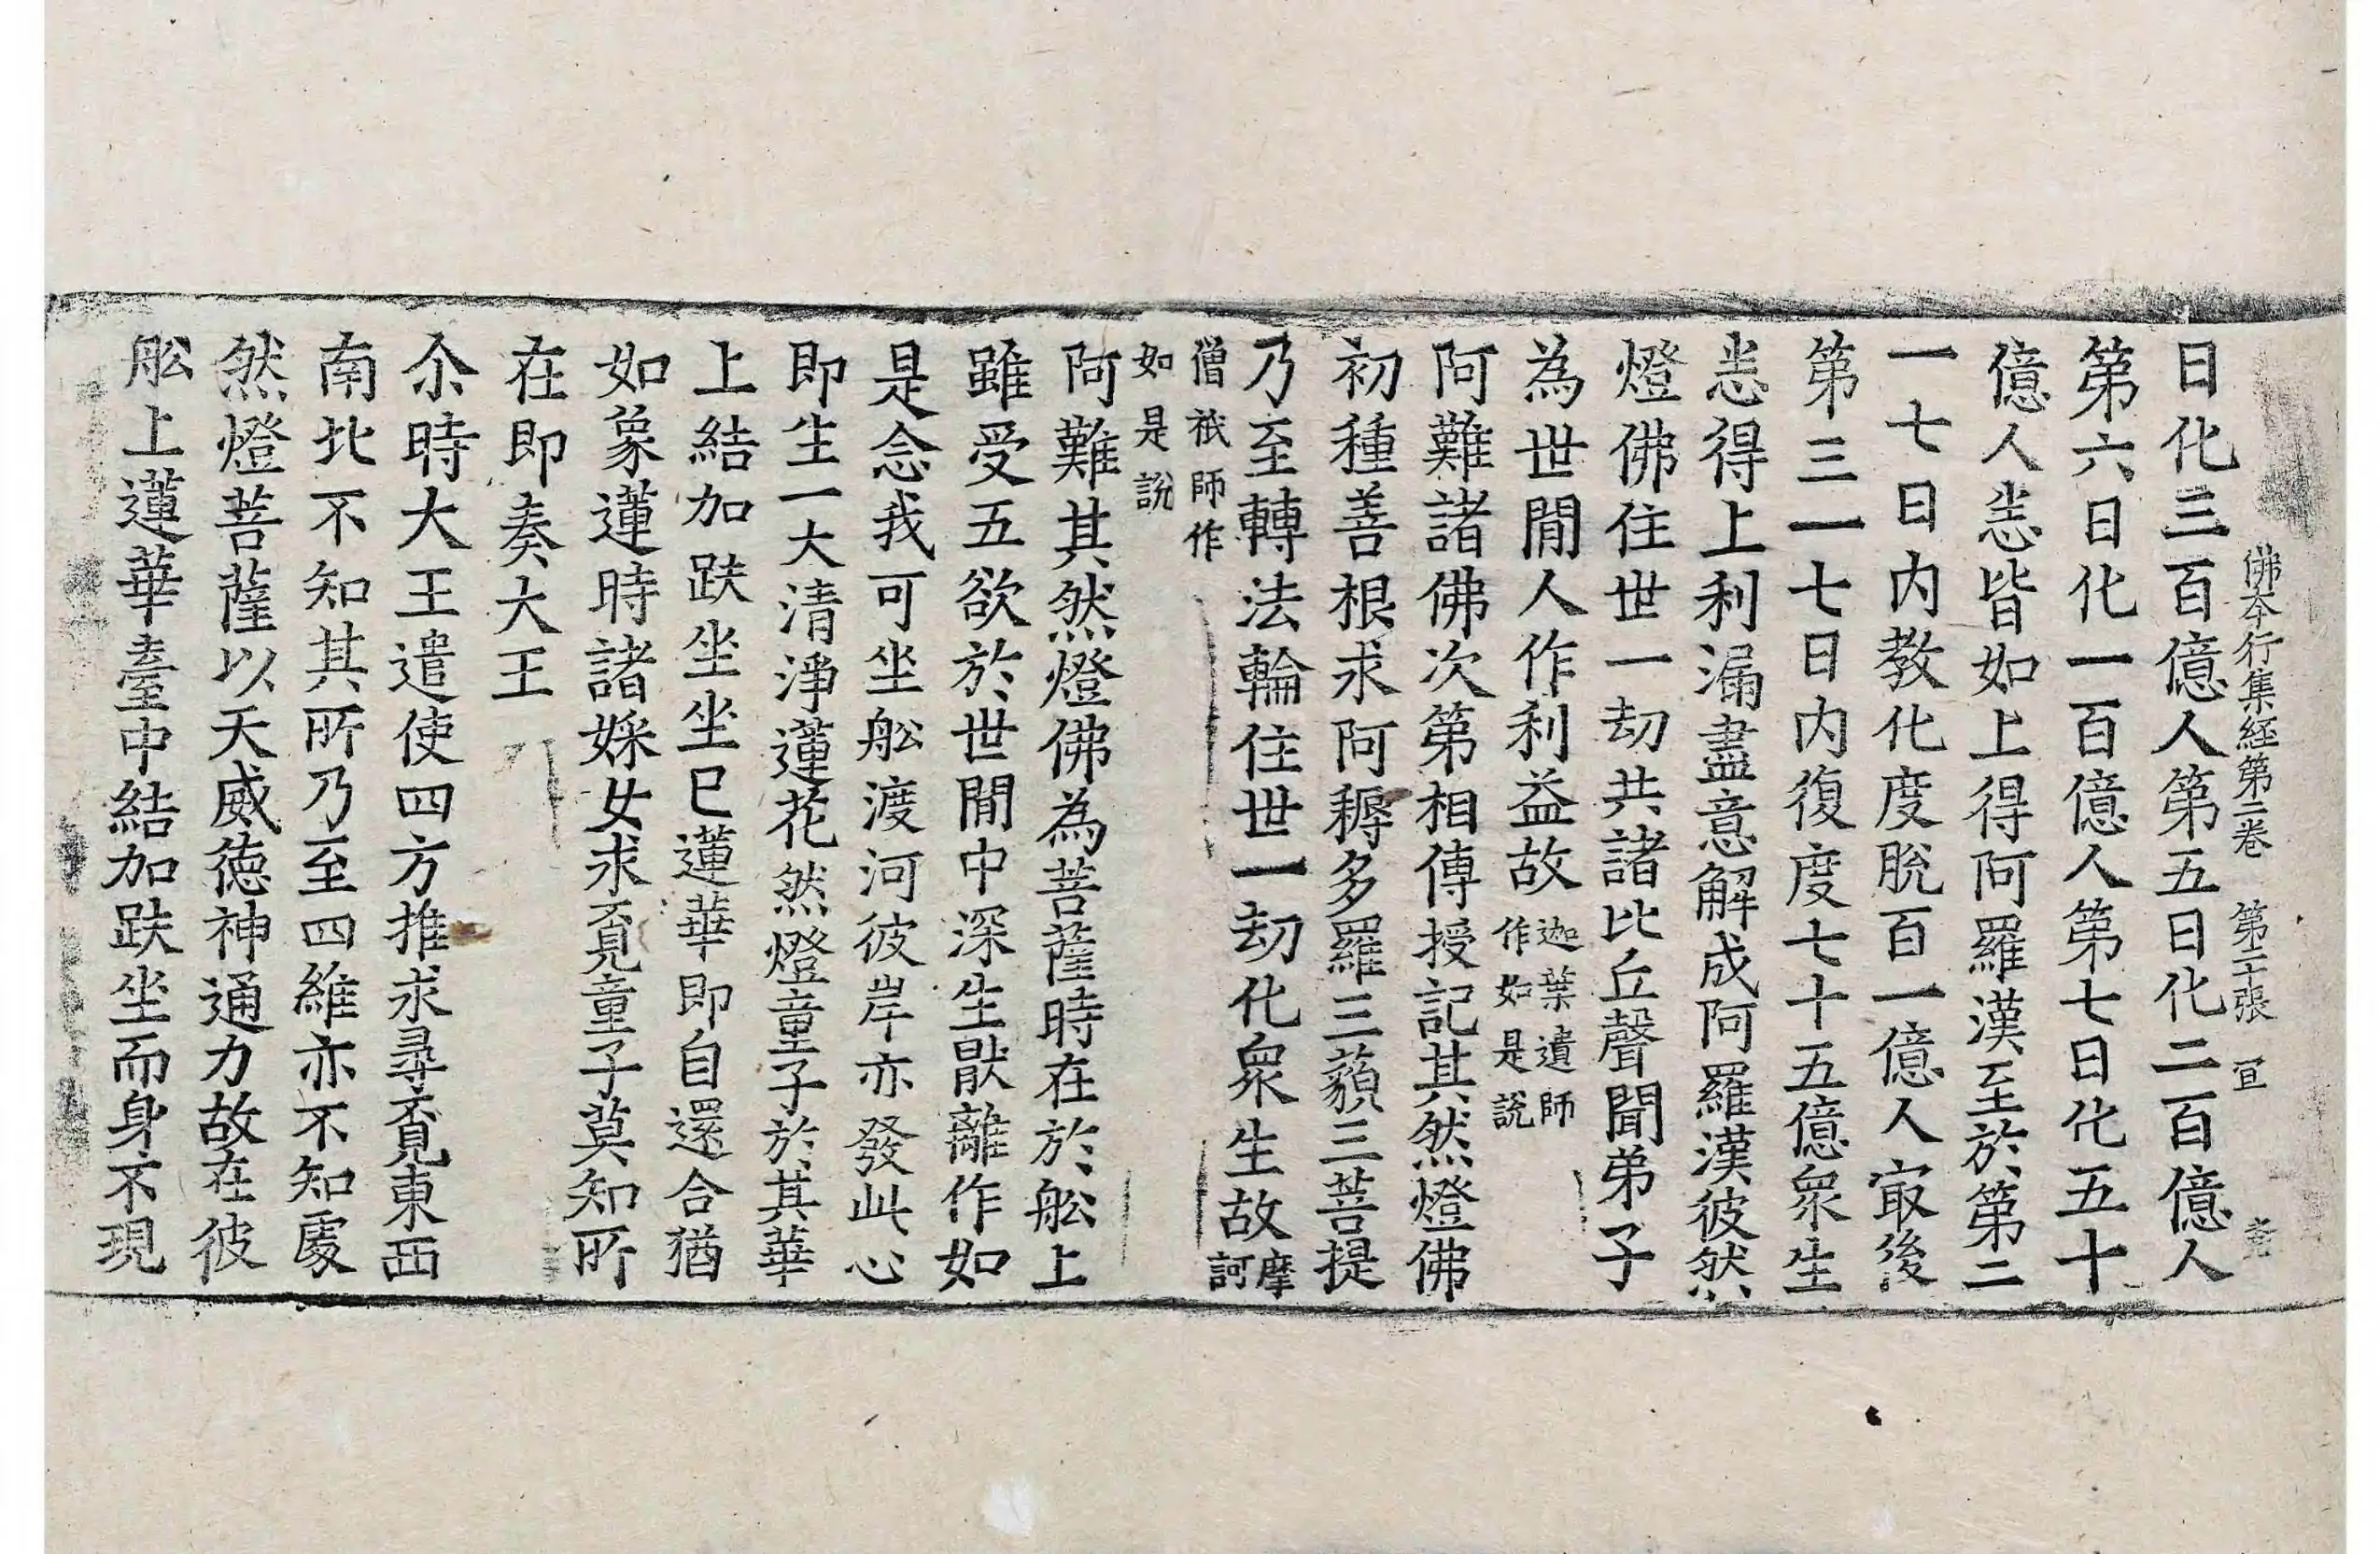 佛本行集経第二卷 第二十張 冝
日化三百億人第五日化二百億人
第六日化一百億人第七日化五十
億人㤪皆如上得阿羅漢至於第二
一七日内教化度脫百一億人㝡後
第三一七日内復度七十五億衆生
㤪得上利漏盡意解成阿羅漢彼然
燈佛住世一劫共諸比丘聲聞弟子
為世間人作利益故迦葉遺師作如是說
阿難諸佛次第相傳授記其然燈佛
初種善根求阿耨多羅三藐三菩提
乃至轉法輪住世一劫化衆生故摩訶
僧祇師作如是說
阿難其然燈佛為菩薩時在於舩上
雖受五欲於世間中深生猒離作如
是念我可坐舩渡河彼岸亦發此心
即生一大清淨蓮花然燈童子於其華
上結加趺坐坐已蓮華即自還合猶
如象蓮時諸婇女求覓童子莫知所
在即奏大王
尒時大王遣使四方推求尋覓東西
南北不知其所乃至四維亦不知處
然燈菩薩以天威德神通力故在彼
舩上蓮華臺中結加趺坐而身不現